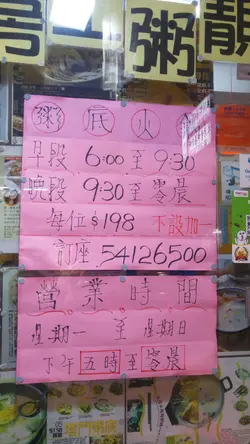 粥 靚
粥底火
早段 6:00 至 9:30
晚段 9:30 至零晨
每位 $198 不設加一
訂座 54126500
營業時間
星期一 至 星期日
下午 五時至零晨